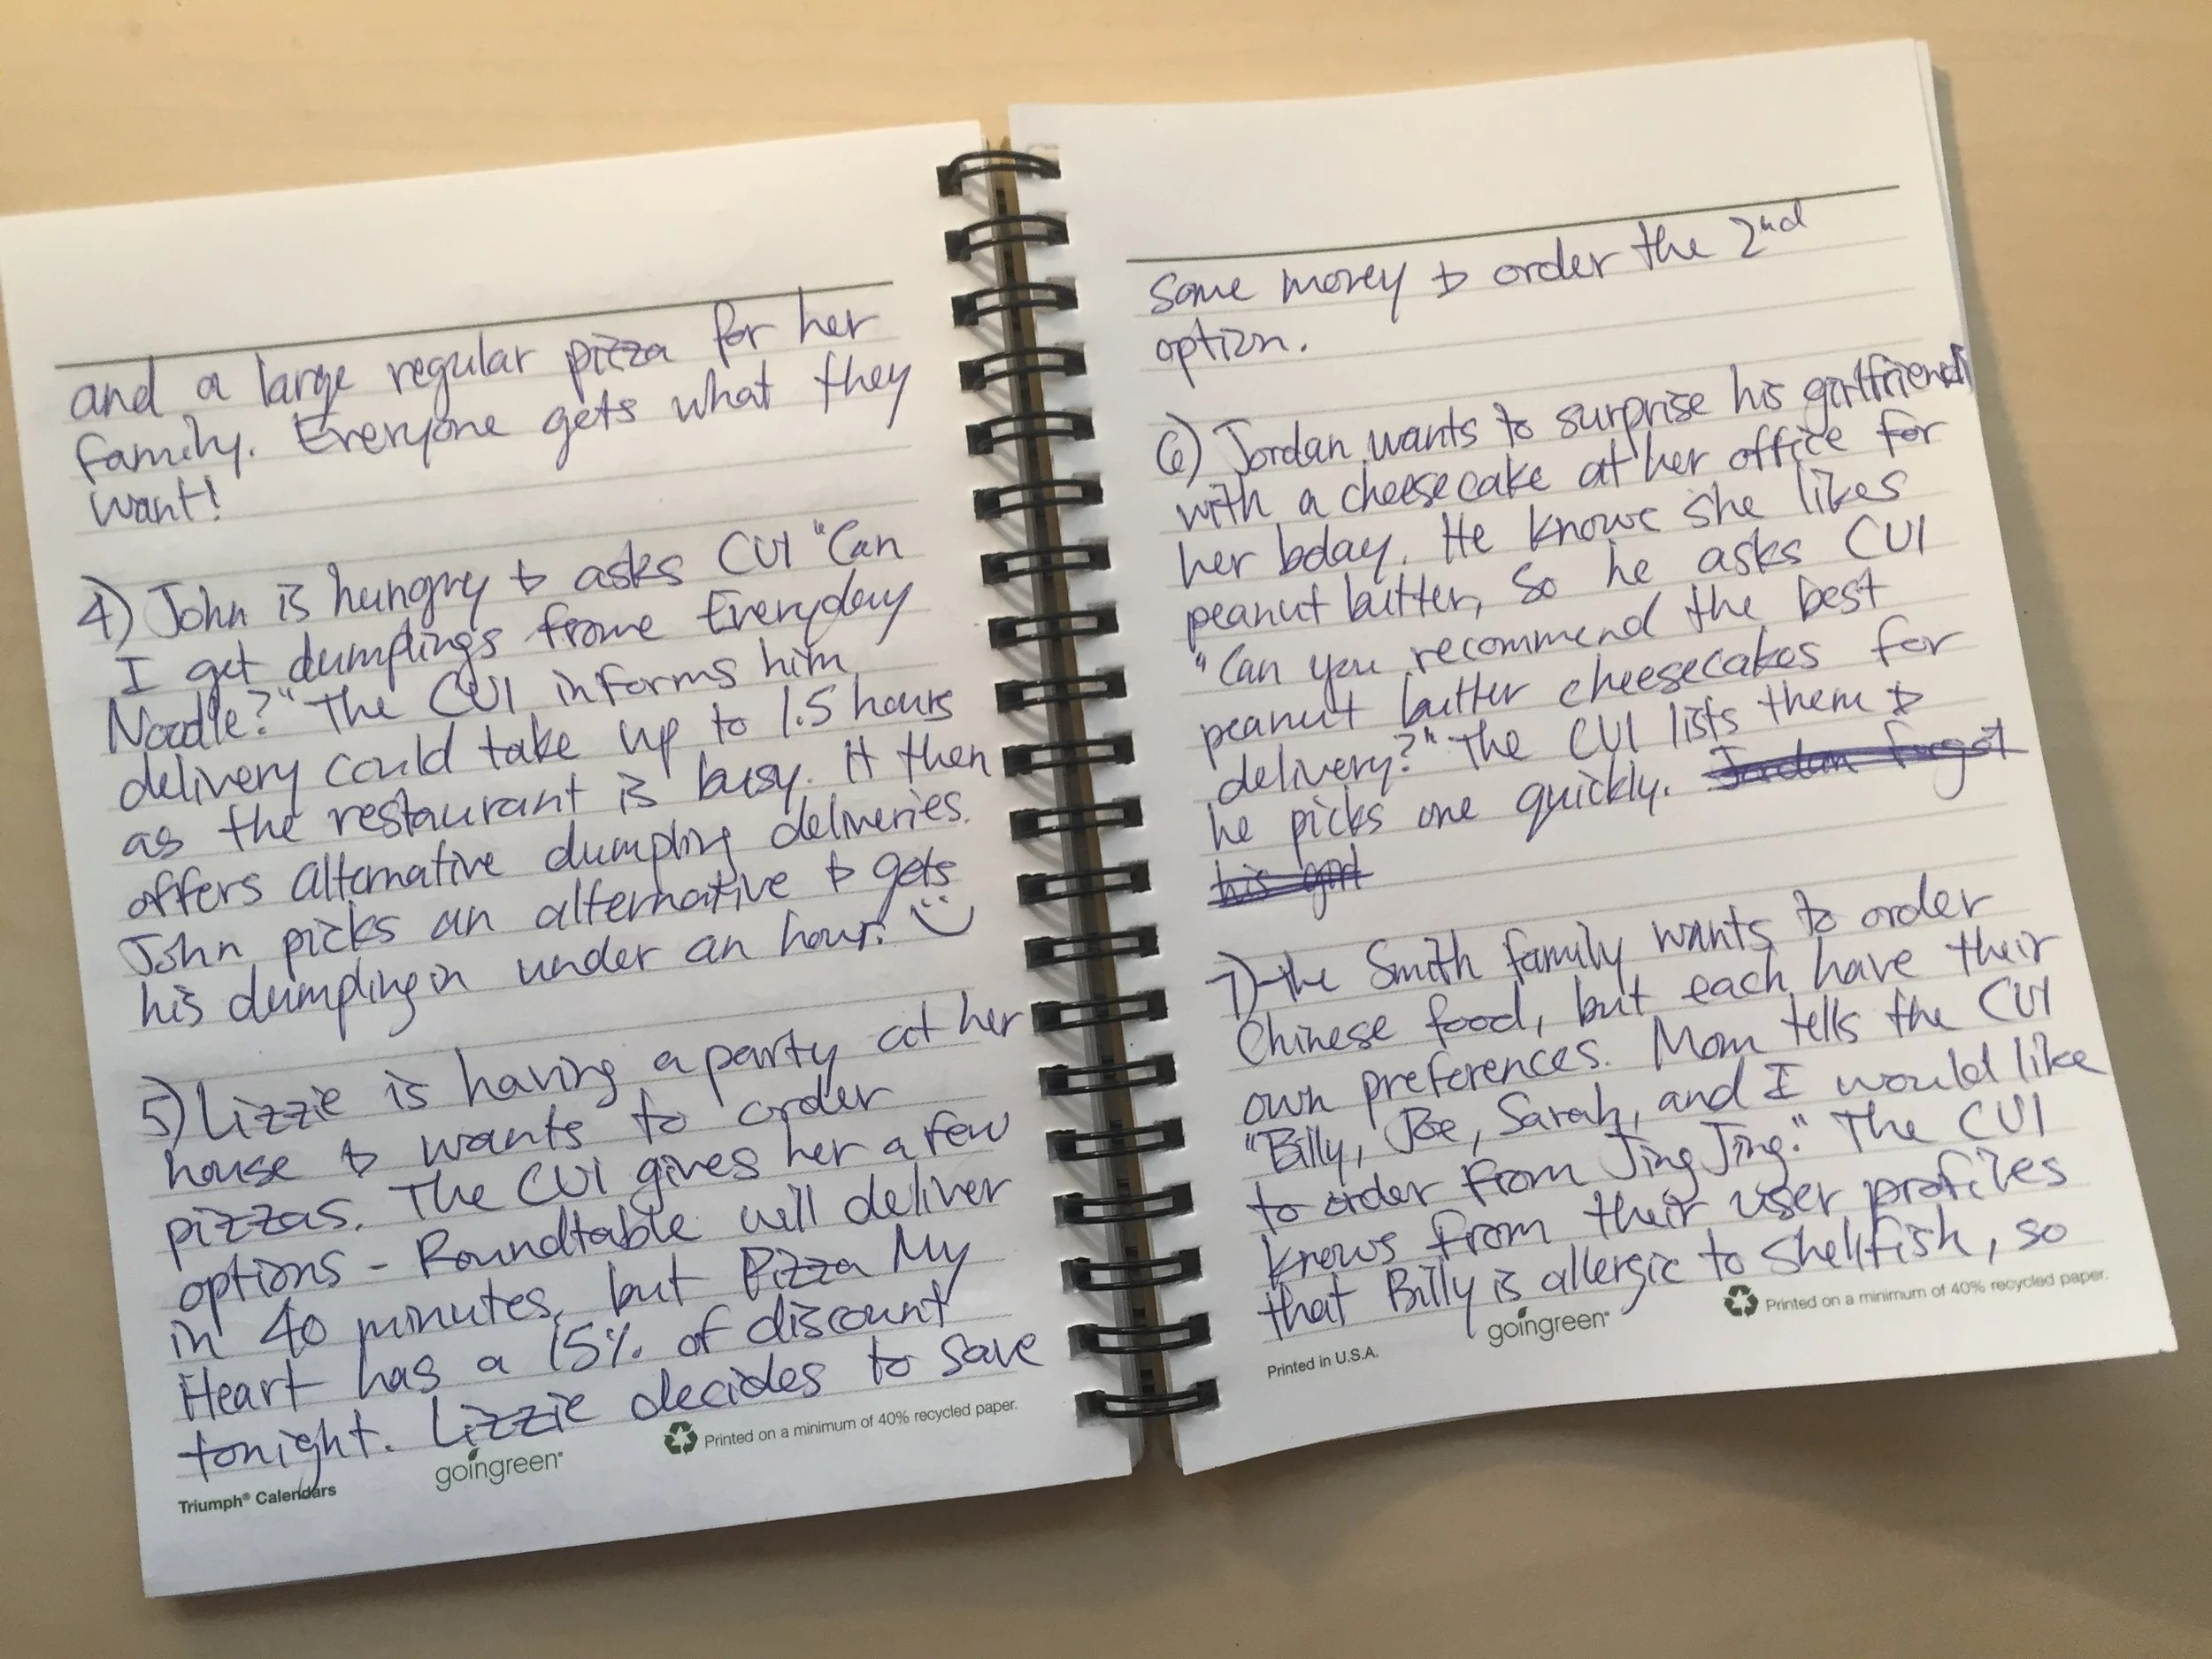 and a large regular pizza for her
family. Everyone gets what they
want!
4) John is hungry & asks CUI "Can
I get dumplings frome Everyday
Noodle?" The CUI informs him
delivery could take up to 1.5 hours
as the restaurant is busy. It then
offers alternative dumpling deliveries.
John picks an alternative & gets
his dumpling in under an hour.
5) Lizzie is having a party at her
house & wants to order
pizzas. The CUI gives her a few
options - Roundtable will deliver
in 40 minutes, but Pizza My
Heart has a 15% of discount
tonight. Lizzie decides to save
Triumph® Calendars
goingreen®
Printed on a minimum of 40% recycled paper.
some money & order the 2nd
option.
6) Jordan wants to surprise his girlfriend
with a cheesecake at her office for
her bday. He knows she likes
peanut butter, so he asks CUI
"Can you recommend the best
peanut butter cheesecakes for
delivery?" The CUI lists them &
he picks one quickly. Jordan forgot
his
7) The Smith family wants to order
Chinese food, but each have their
own preferences. Mom tells the CUI
"Billy, Joe, Sarah, and I would like
to order from Jing Jing." The CUI
knows from their user profiles
that Billy is allergic to shellfish, so
Printed in U.S.A.
goingreen®
Printed on a minimum of 40% recycled paper.